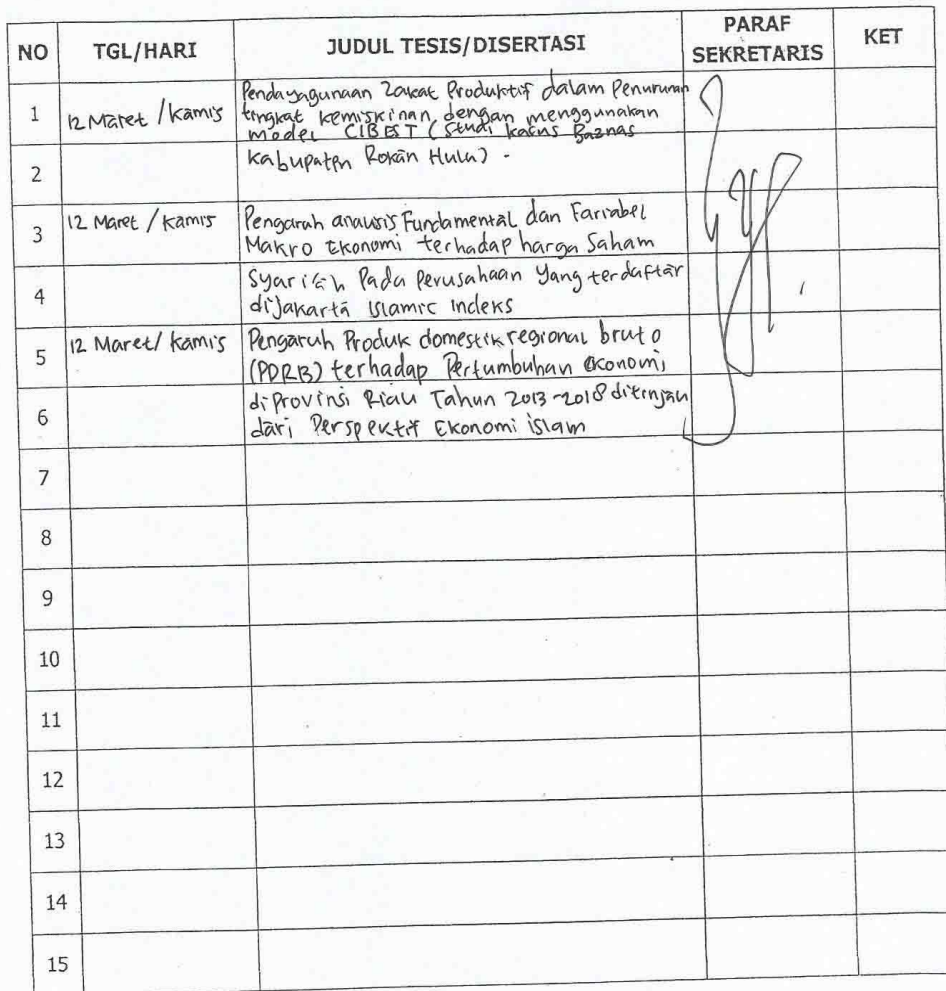 NO TGL/HARI JUDUL TESIS/DISERTASI PARAF SEKRETARIS KET
1 12 Maret / Kamis Pendayagunaan Zakat Produktif dalam Penurunan
tingkat kemiskinan dengan menggunakan
model CIBEST (Studi kasus Baznas
2 Kabupaten Rokan Hulu) -
3 12 Maret / Kamis Pengaruh analisis Fundamental dan Fariabel
Makro Ekonomi terhadap harga Saham
4 Syariah Pada Perusahaan Yang terdaftar
diJakarta Islamic Indeks
5 12 Maret / Kamis Pengaruh Produk domestik regional bruto
(PDRB) terhadap Pertumbuhan Ekonomi
6 diProvinsi Riau Tahun 2013-2018 ditinjau
dari Perspektif Ekonomi islam
7
8
9
10
11
12
13
14
15